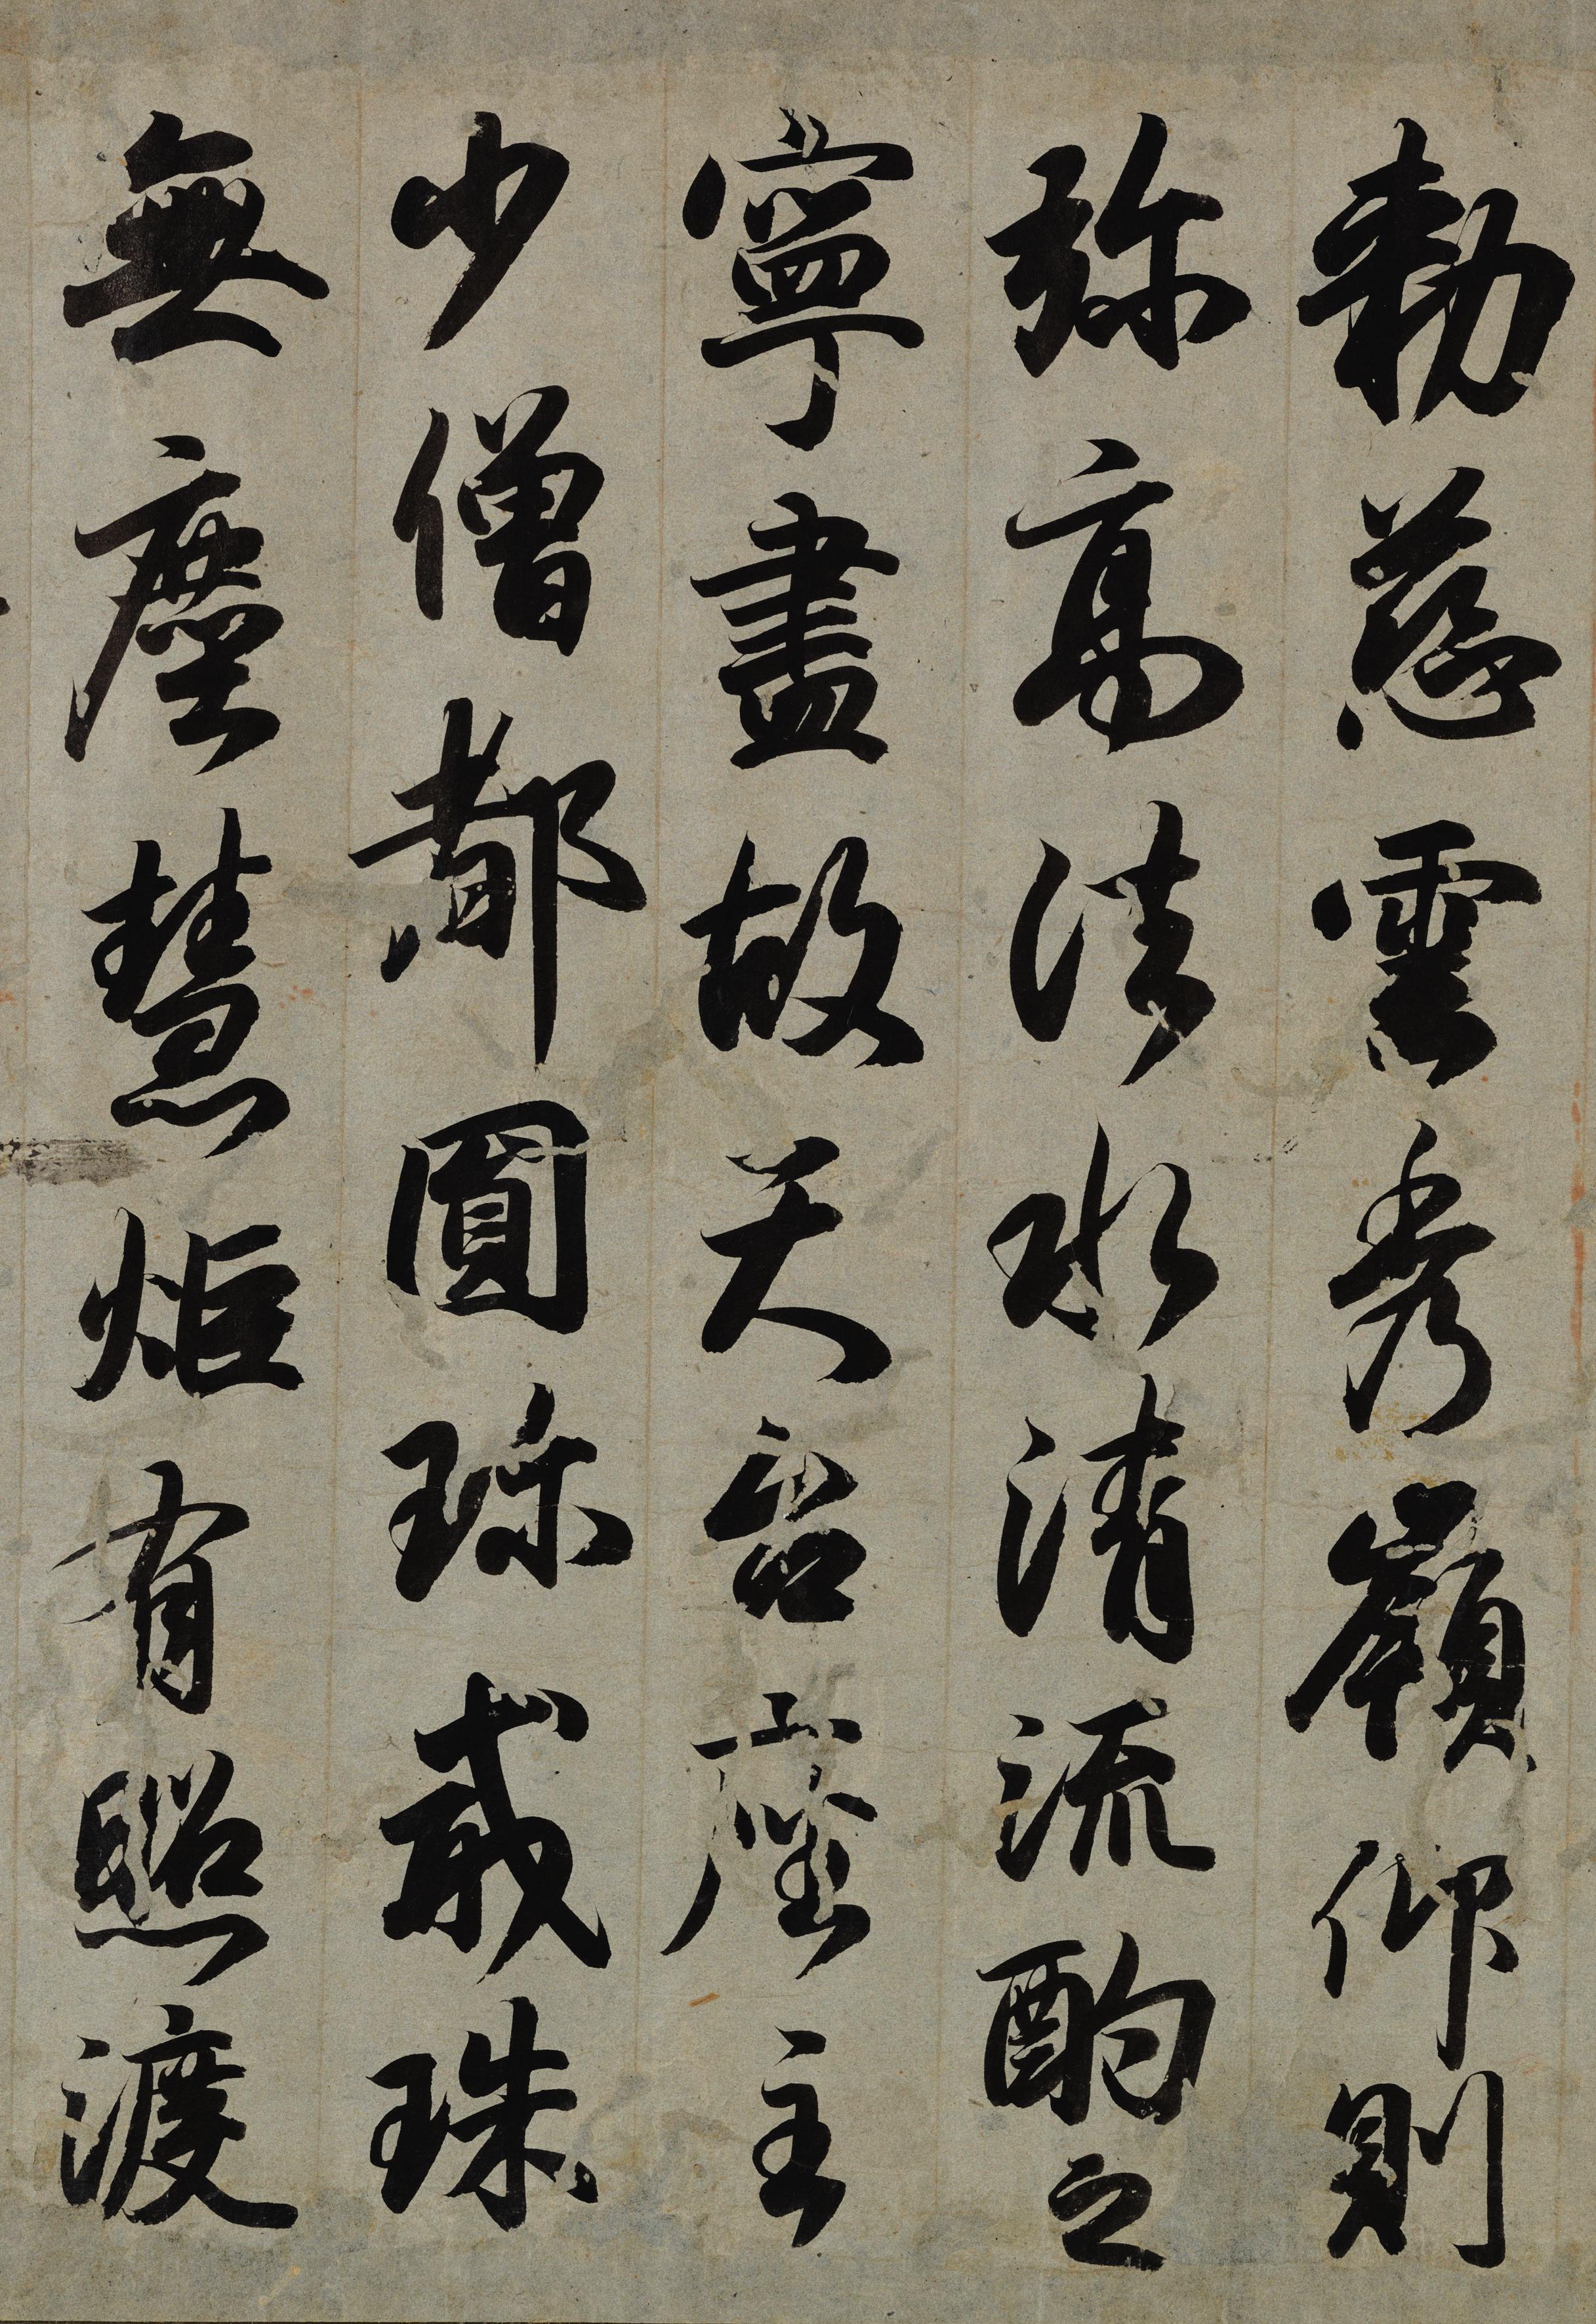 勅慈雲秀嶺仰則
弥高法水清流酌之
寧盡故天台座主
少僧都圓珎戒珠
無塵慧炬有照渡